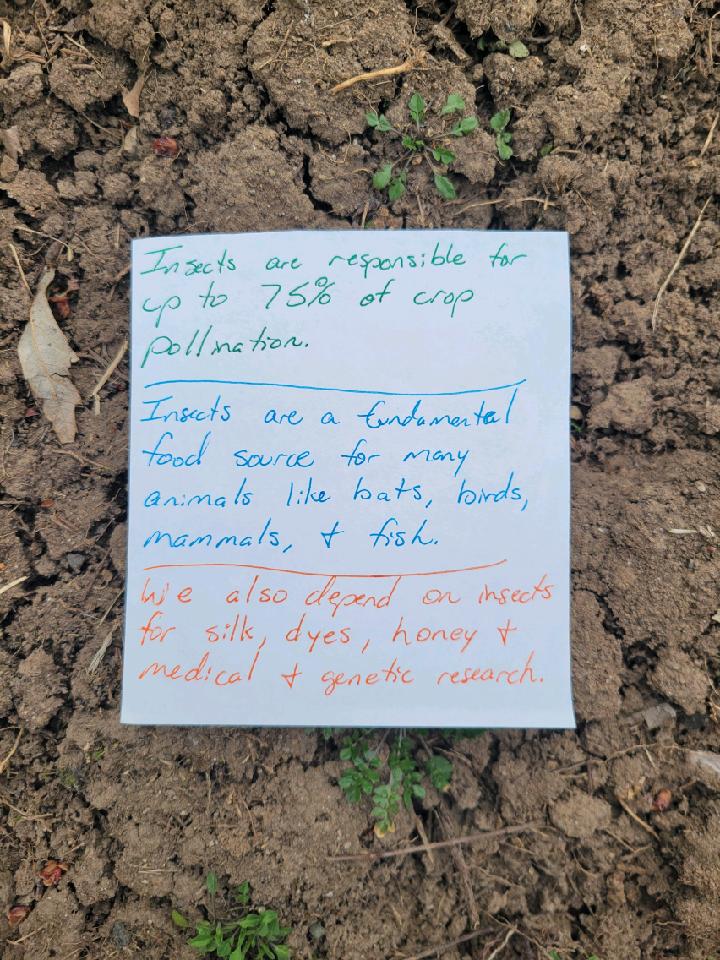 Insects are responsible for
up to 75% of crop
pollination.
Insects are a fundamental
food source for many
animals like bats, birds,
mammals, + fish.
We also depend on insects
for silk, dyes, honey +
medical + genetic research.